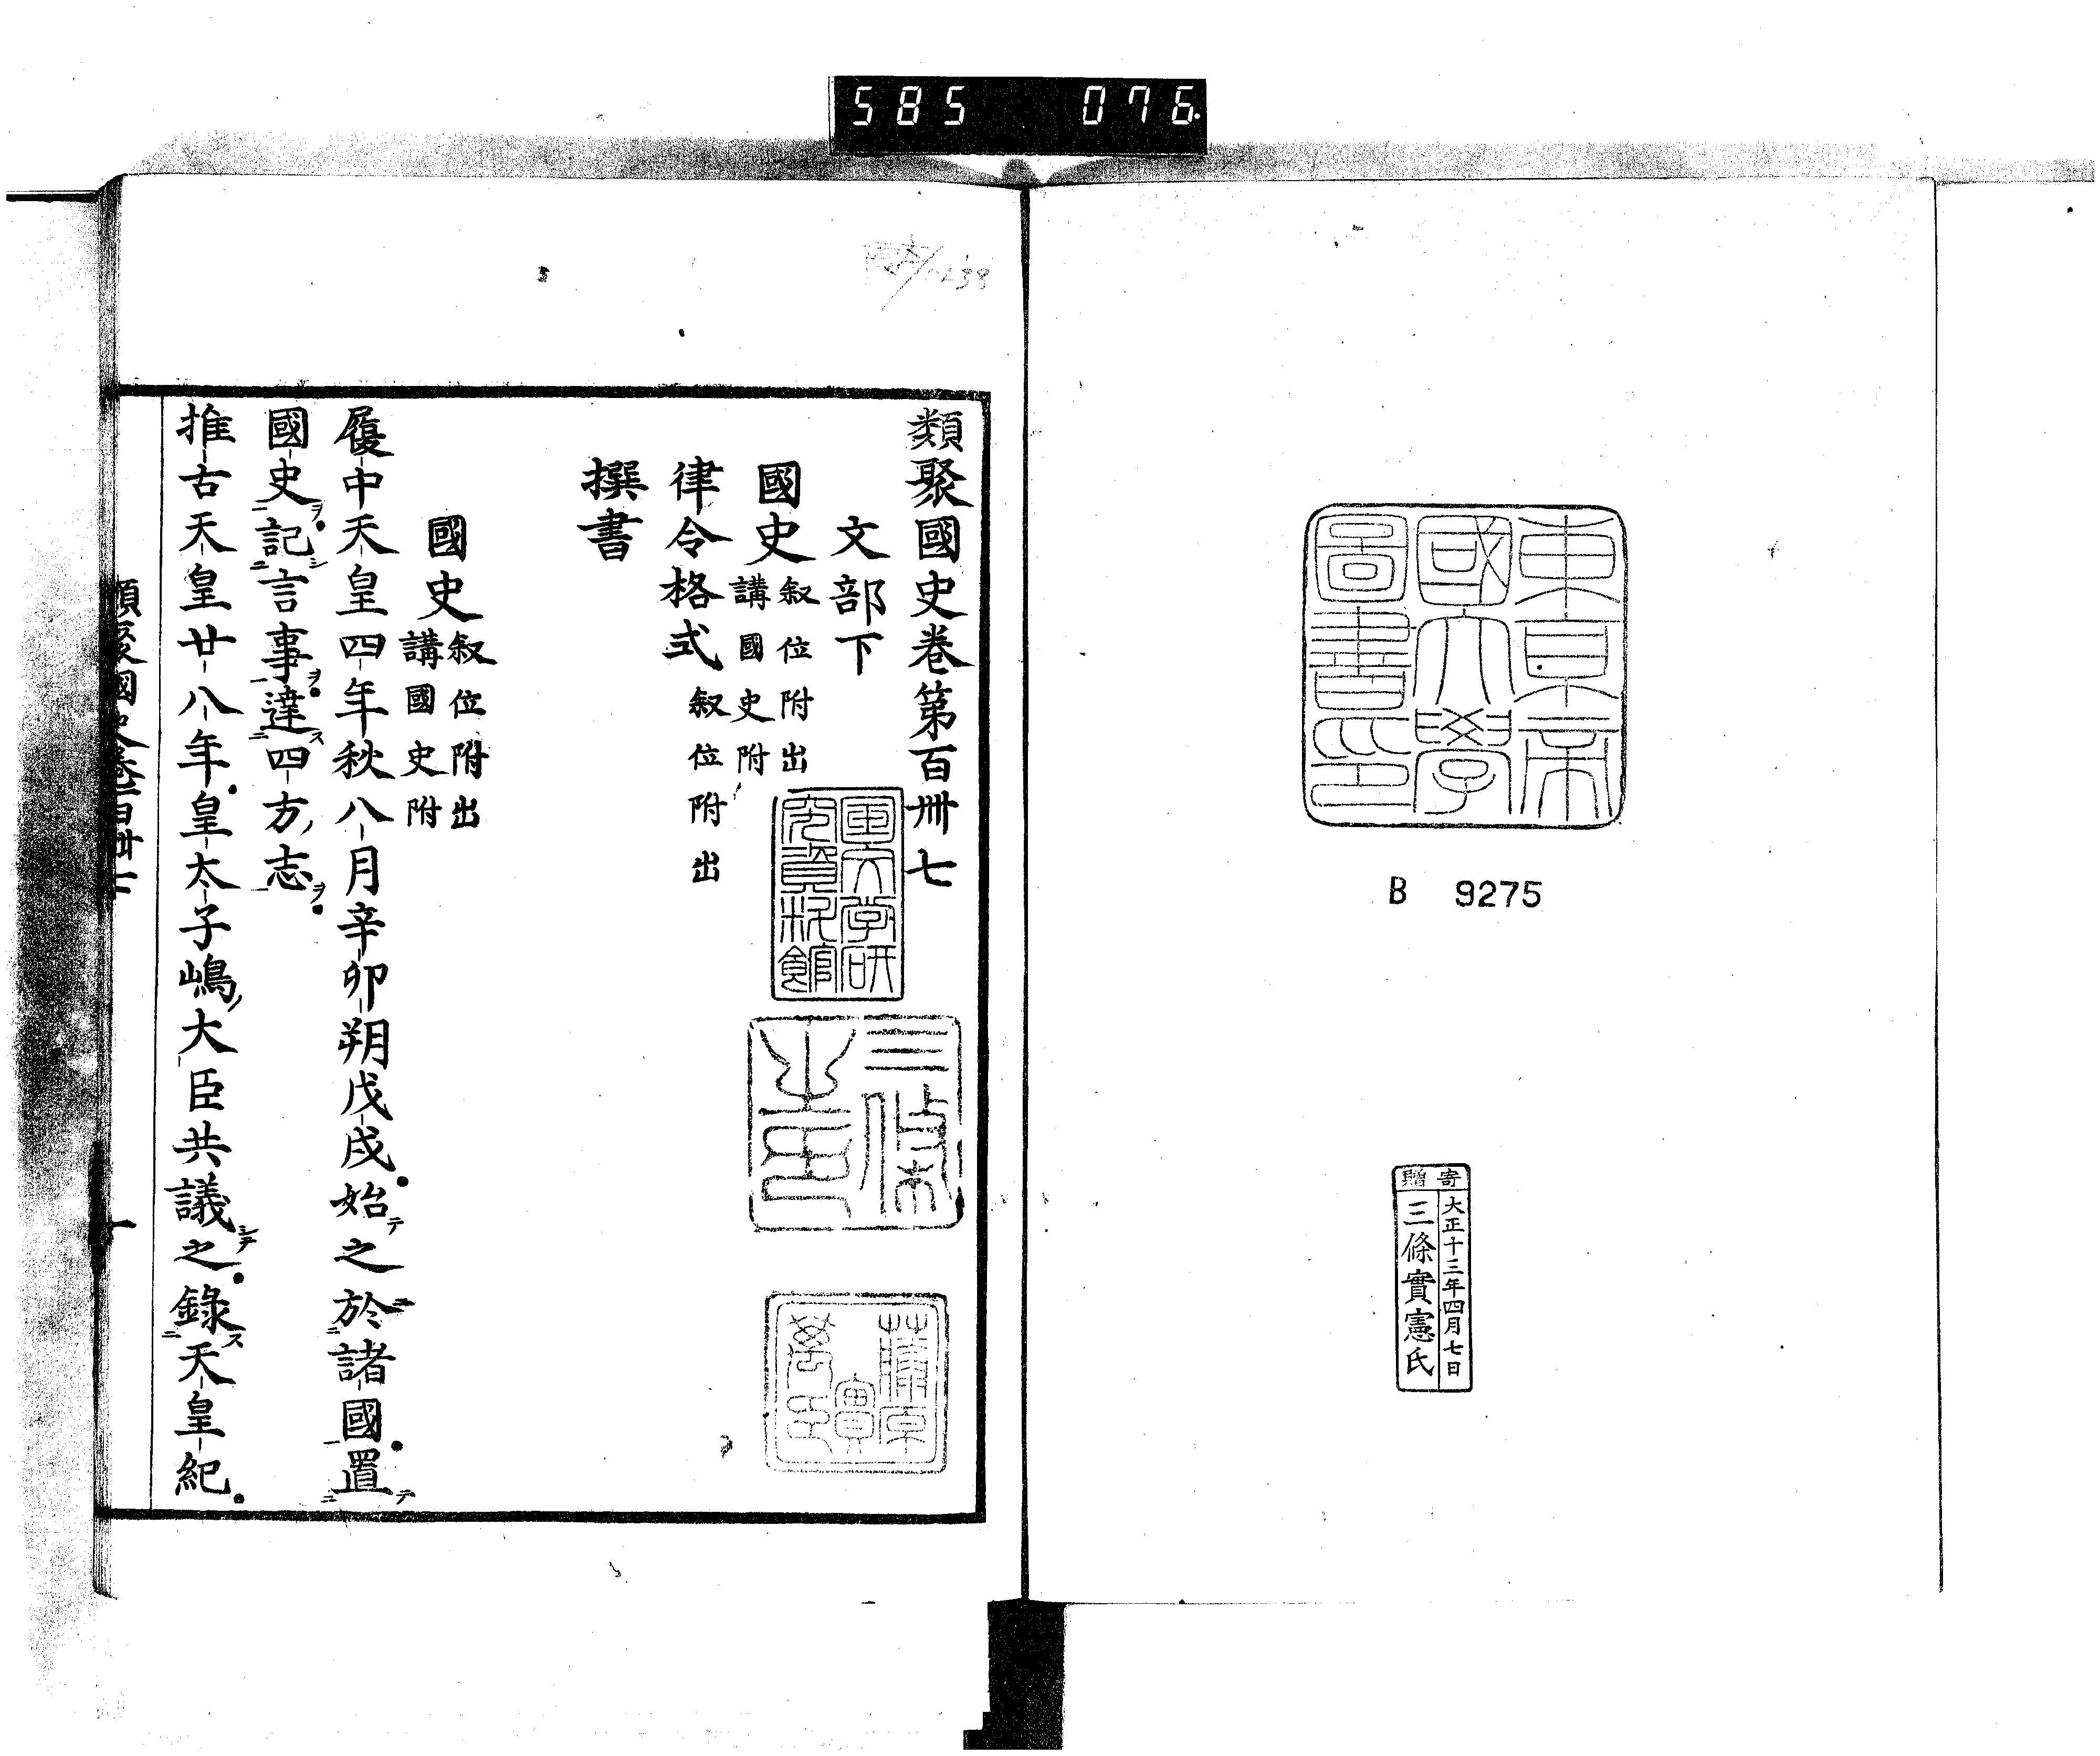 585 076
東京帝
國大學
圖書印
B 9275
寄贈
大正十三年四月七日
三條實憲氏
類聚國史卷第百卌七
文部下
國史 叙位附出
講國史附
律令格式 叙位附出
撰書
國文学研
究資料館
三條
藤原
實
萬
國史 叙位附出
講國史附
履中天皇四年秋八月辛卯朔戊戌始テ之於ニ諸國置テ
國史ヲ記シ言事ヲ達ス四方ノ志ヲ
推古天皇廿八年皇太子嶋ノ大臣共議シテ之錄ス天皇紀
類聚國史卷百卌七 一